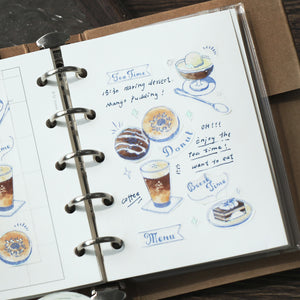 Tea Time
making dessert
Mango Pudding!
OH!!!
Enjoy the
Tea Time!
want to eat
Donut
Coffee
Break
Time
Menu